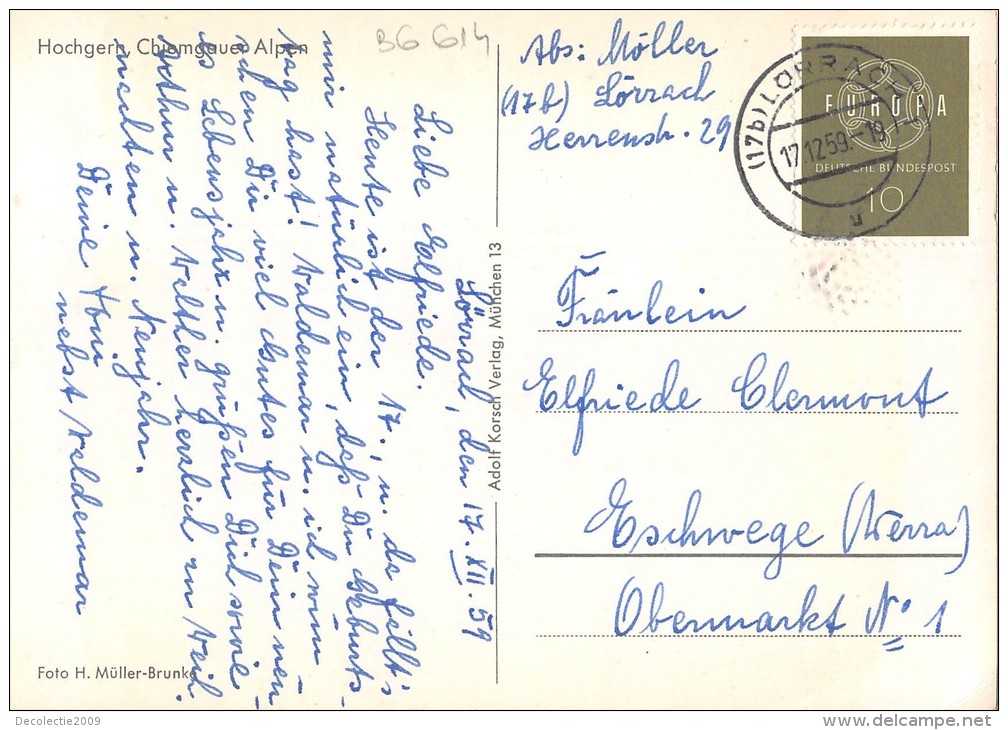 Hochgern, Chiemgauer Alpen
BG G14
Abs: Möller
(17b) Lörrach
Herrenstr. 29
(17b) LÖRRACH
17.12.59.-19
EUROPA
DEUTSCHE BUNDESPOST
10
Lörrach, den 17. XII. 59
Liebe Elfriede.
Heute ist der 17. u. da fällt's
mir natürlich ein, daß Du Geburts-
tag hast! Waldemar u. ich wün-
schen Dir viel Gutes für Dein neu-
es Lebensjahr u. grüßen Dich sowie
u. Walther herzlich zu Weih-
nachten u. Neujahr.
Deine
nebst Waldemar
Adolf Korsch Verlag, München 13
Fräulein
Elfriede Clermont
Eschwege (Werra)
Obermarkt No 1
Foto H. Müller-Brunke
Decolectie2009
www.delcampe.net